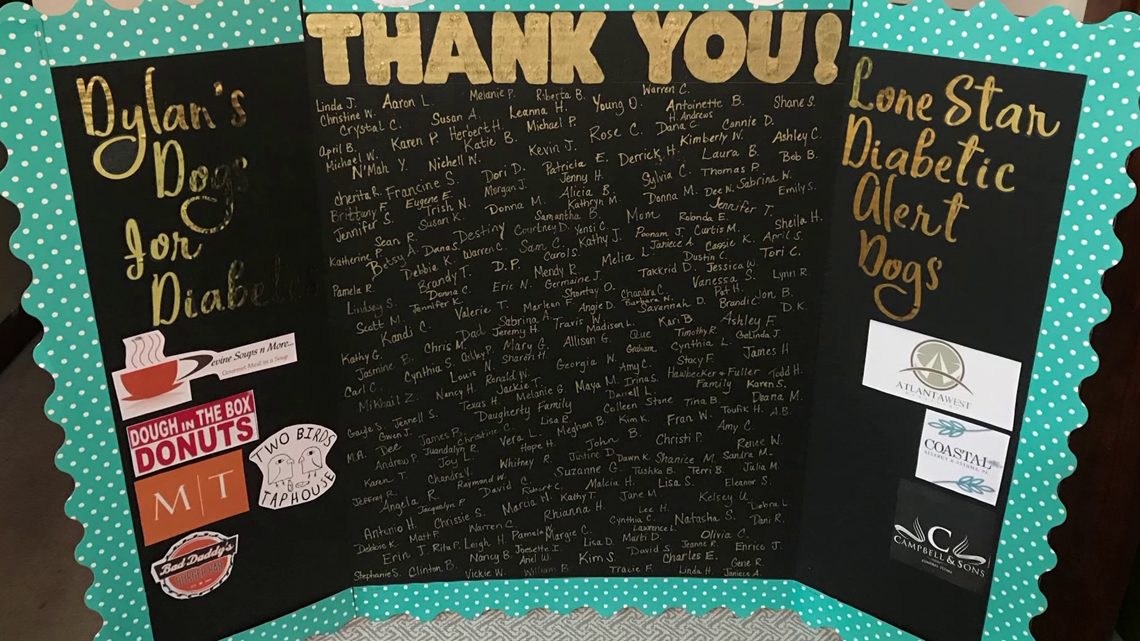 THANK YOU!
Dylan's
Dogs
for
Diabetes
Lone Star
Diabetic
Alert
Dogs
Linda J. Aaron L. Melanie P. Riberta B. Warren C.
Christine W. Susan A. Leanna H. Young O. Antoinette B. Shane S.
Crystal C. Herbert H. Michael P. H Andreus Connie D.
April B. Karen P. Katie B. Rose C. Dana C. Kimberly W. Ashley C.
Michael W. N'Mah Y. Nichell W. Kevin J. Derrick H. Laura B. Bob B.
Cherita R. Francine S. Dori D. Patricia E. Sylvia C. Thomas P.
Brittany F. Eugene E. Morgan J. Jenny H. Donna M. Dee N. Sabrina W. Emily S.
Jennifer S. Trish N. Donna M. Alicia B. Kathryn M. Jennifer T.
Sean R. Susan K. Destiny Samantha B. Mom Robnda E. Sheila H.
Katherine P. Betsy A. Dana S. Warren C. Courtney D. Yensi C. Poonam J. Curtis M. April S.
Debbie K. Sam C. Carol S. Kathy J. Janiece A. Cassie K. Tori C.
Pamela R. Brandy T. D.P. Mendy R. Melia L. Dustin C.
Lindsey S. Donna C. Eric N. Germaine J. Takkrid D. Jessica W. Vanessa S. Lynn R.
Scott M. Jennifer K. Valerie T. Marlean F. Shontay O. Chandra C. Barbara N. Pat H. Jon B.
Kandi C. Dad Sabrina A. Angie D. Savannah D. Brandi C. D.K.
Kathy G. Chris M. Jeremy H. Travis W. Madison L. Kari B Ashley F.
Jasmine B. Cynthia S. Mary G. Allison G. Que Timothy R. GeLinda J.
Carl C. Louis N. Sharon H. Graham Cynthia L. James H
Mikhail Z. Nancy H. Ronald W. Georgia W. Amy C. Stacy F. Todd H.
Texas H. Jackie T. Melanie G. Maya M. Irina S. Hawbecker & Fuller Family Karen S.
Gayle S. Jenell S. Daugherty Family Darrell L. Tina B. Duana M.
Gwen J. James P. Christine C. Lisa R. Colleen Stone Toufik H. A.B.
M.A. Dee Juandalyn R. Vera L. Meghan B. Kim K. Fran W. Amy C.
Andrew P. Joy L. Hope H. John B. Christi P. Renee W.
Karen T. Chandra V. Whitney R. Justine D. Dawn K. Shanice M. Sandra M.
Jeffrey R. Raymond W. Suzanne G. Tushba B. Terri B. Julia M.
Angela R. Jacquelyn P. David C. Robert C. Malcia H. Lisa S. Eleanor S.
Antonio H. Chrissie S. Marcia M. Kathy T. Jane M. Kelsey U.
Debbie K. Matt P. Warren C. Rhianna H. Lee H. Natasha S. Debra L.
Erin J. Rita P. Leigh H. Pamela W. Margie C. Cynthia C. Lawrence L. Dani R.
Nancy B. Joesette I. Lisa D. Marbi D. Olivia C.
Stephanie S. Clinton B. Ariel W. Kim S. David S. Jeanne R. Enrico J.
Vickie W. William B. Tracie F. Charles E. Gene R.
Linda H. Janiece A.
Devine Soups n More...
Gourmet Meal in a Soup
DOUGH IN THE BOX
DONUTS
TWO BIRDS
TAPHOUSE
M|T
Bad Daddy's
BURGER BAR
ATLANTAWEST
COASTAL
ALLERGY & ASTHMA, PC
C
CAMPBELL & SONS